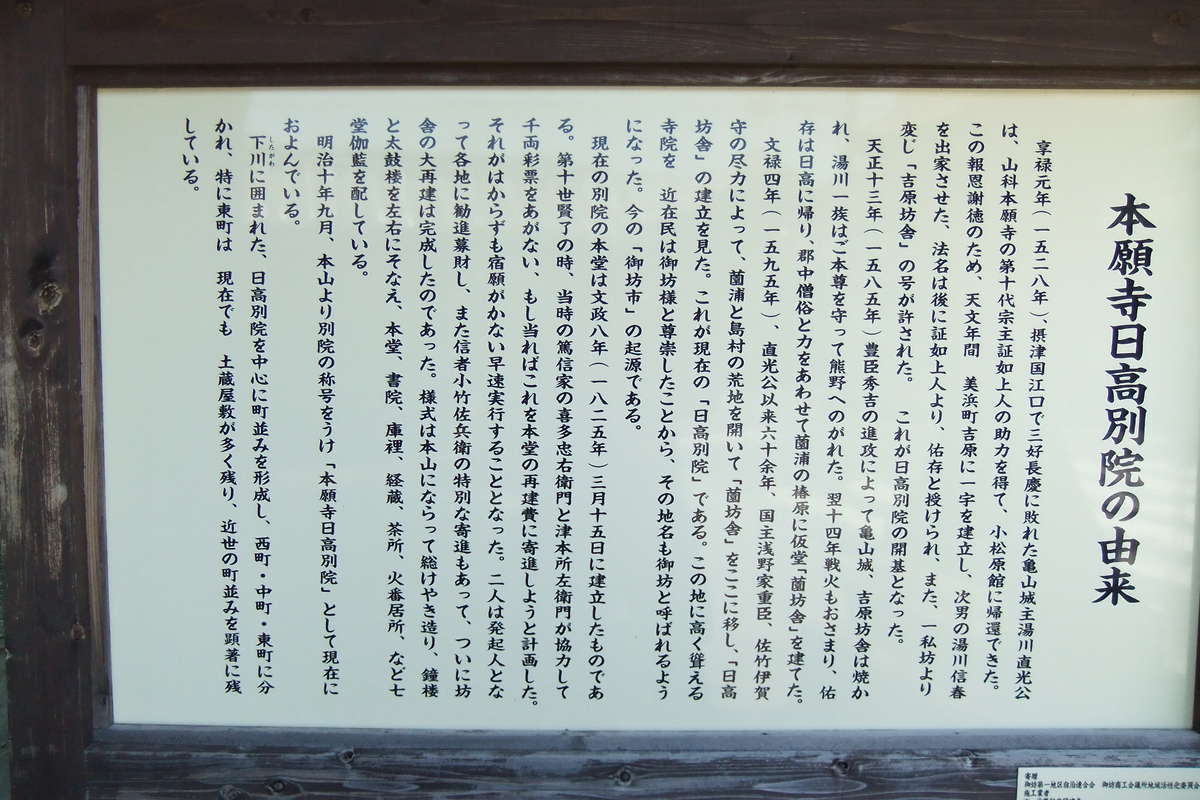 本願寺日高別院の由来
享禄元年(一五二八年)、摂津国江口で三好長慶に敗れた亀山城主湯川直光公
は、山科本願寺の第十代宗主証如上人の助力を得て、小松原館に帰還できた。
この報恩謝徳のため、天文年間 美浜町吉原に一宇を建立し、次男の湯川信春
を出家させた、法名は後に証如上人より、佑存と授けられ、また、一私坊より
変じ「吉原坊舎」の号が許された。 これが日高別院の開基となった。
天正十三年(一五八五年)豊臣秀吉の進攻によって亀山城、吉原坊舎は焼か
れ、湯川一族はご本尊を守って熊野へのがれた。翌十四年戦火もおさまり、佑
存は日高に帰り、郡中僧俗と力をあわせて薗浦の椿原に仮堂「薗坊舎」を建てた。
文禄四年(一五九五年)、直光公以来六十余年、国主浅野家重臣、佐竹伊賀
守の尽力によって、薗浦と島村の荒地を開いて「薗坊舎」をここに移し、「日高
坊舎」の建立を見た。これが現在の「日高別院」である。この地に高く聳える
寺院を 近在民は御坊様と尊崇したことから、その地名も御坊と呼ばれるよう
になった。今の「御坊市」の起源である。
現在の別院の本堂は文政八年(一八二五年)三月十五日に建立したものであ
る。第十世賢了の時、当時の篤信家の喜多忠右衛門と津本所左衛門が協力して
千両彩票をあがない、もし当ればこれを本堂の再建費に寄進しようと計画した。
それがはからずも宿願がかない早速実行することとなった。二人は発起人とな
って各地に勧進募財し、また信者小竹佐兵衛の特別な寄進もあって、ついに坊
舎の大再建は完成したのであった。様式は本山にならって総けやき造り、鐘楼
と太鼓楼を左右にそなえ、本堂、書院、庫裡、経蔵、茶所、火番居所、など七
堂伽藍を配している。
明治十年九月、本山より別院の称号をうけ「本願寺日高別院」として現在に
およんでいる。
下川に囲まれた、日高別院を中心に町並みを形成し、西町・中町・東町に分
したがわ
かれ、特に東町は 現在でも 土蔵屋敷が多く残り、近世の町並みを顕著に残
している。
寄贈
御坊第一地区自治連合会 御坊商工会議所地域活性化委員会
施工業者